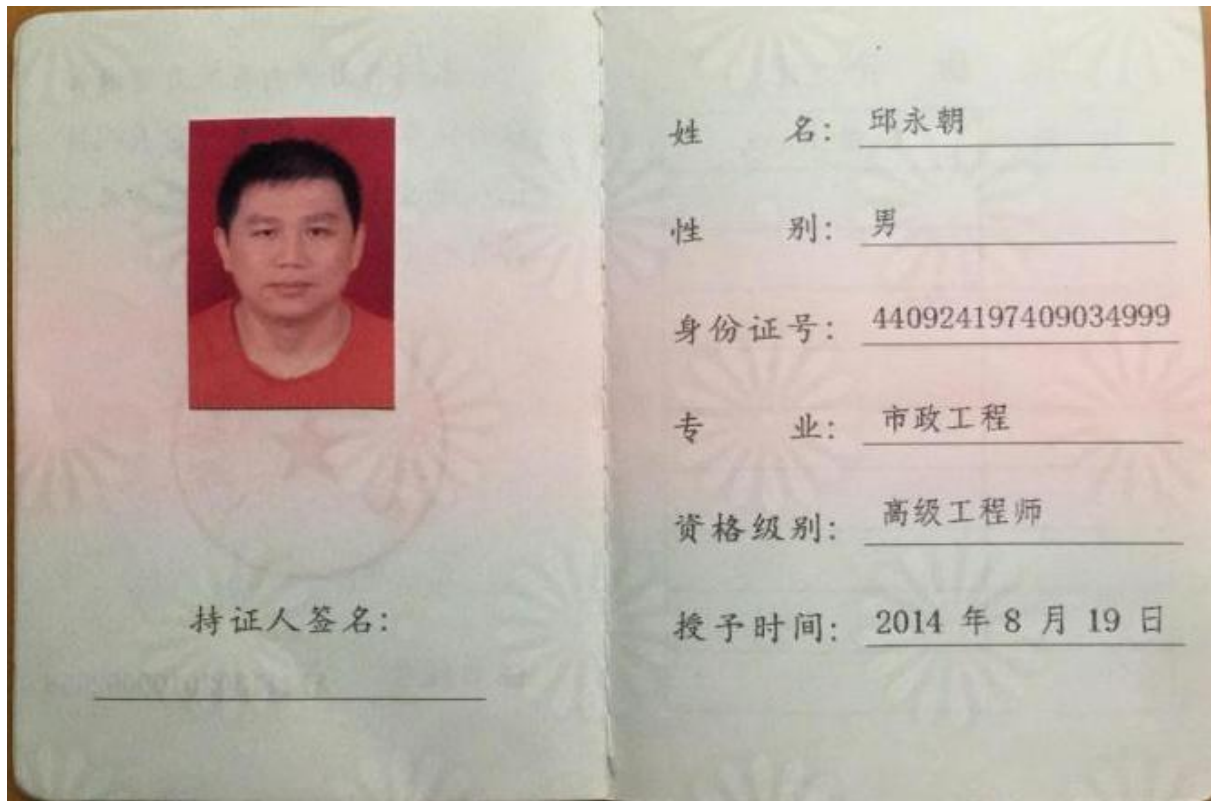 持证人签名：
姓名：邱永朝
性别：男
身份证号：440924197409034999
专业：市政工程
资格级别：高级工程师
授予时间：2014 年 8 月 19 日